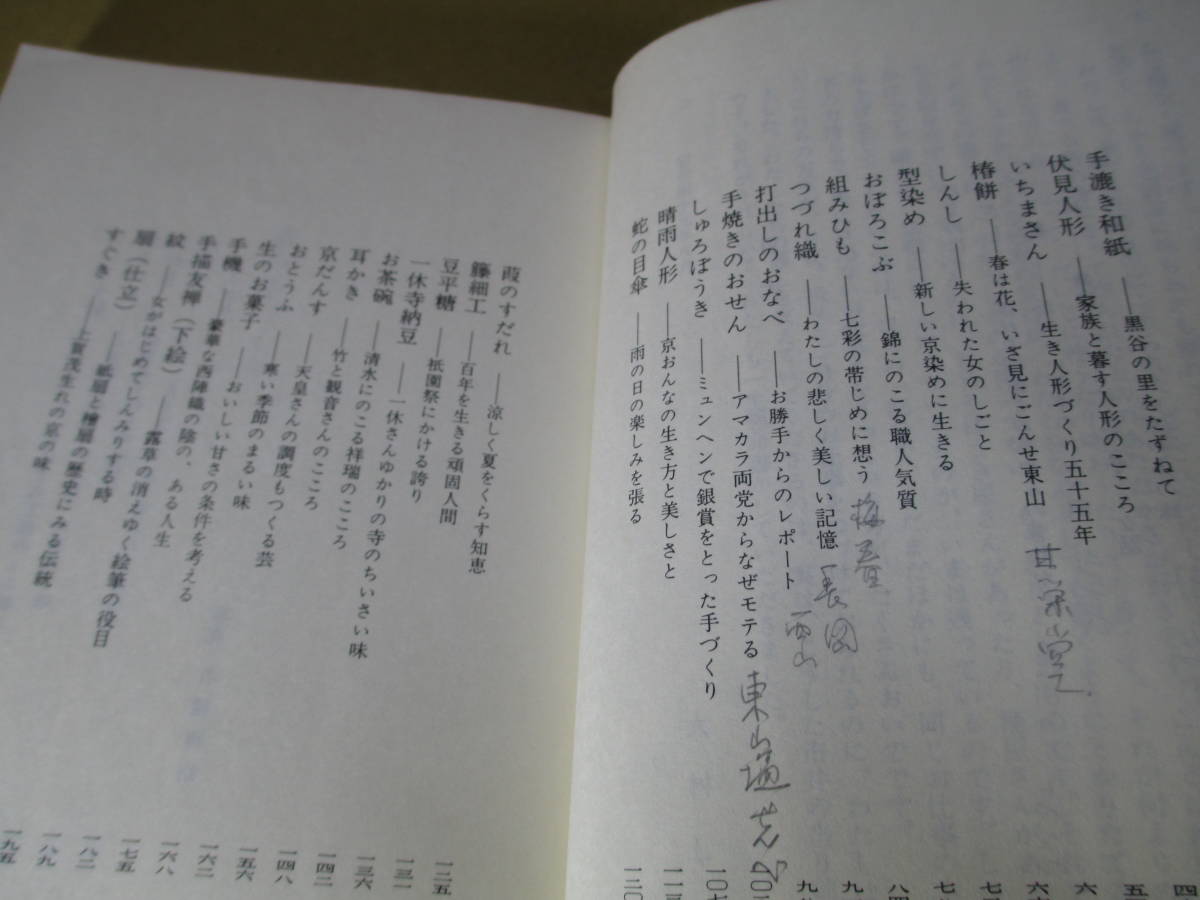 手漉き和紙――黒谷の里をたずねて
伏見人形――家族と暮す人形のこころ
いちまさん――生き人形づくり五十五年
椿餅――春は花、いざ見にごんせ東山
しんし――失われた女のしごと
型染め――新しい京染めに生きる
おぼろこぶ――錦にのこる職人気質
組みひも――七彩の帯じめに想う
つづれ織――わたしの悲しく美しい記憶
打出しのおなべ――お勝手からのレポート
手焼きのおせん――アマカラ両党からなぜモテる
しゅろぼうき――ミュンヘンで銀賞をとった手づくり
晴雨人形――京おんなの生き方と美しさと
蛇の目傘――雨の日の楽しみを張る
甘栄堂
梅春
西山
東山
葭のすだれ――涼しく夏をくらす知恵
籐細工――百年を生きる頑固人間
豆平糖――祇園祭にかける誇り
一休寺納豆――一休さんゆかりの寺のちいさい味
お茶碗――清水にのこる祥瑞のこころ
耳かき――竹と観音さんのこころ
京だんす――天皇さんの調度もつくる芸
おとうふ――寒い季節のまるい味
生のお菓子――おいしい甘さの条件を考える
手機――豪華な西陣織の陰の、ある人生
手描友禅（下絵）――露草の消えゆく絵筆の役目
紋――女がはじめてしんみりする時
扇（仕立）――紙扇と檜扇の歴史にみる伝統
すぐき――上賀茂生れの京の味
一二五
一三一
一三六
一四二
一四八
一五六
一六二
一六八
一七五
一八二
一八九
一九五